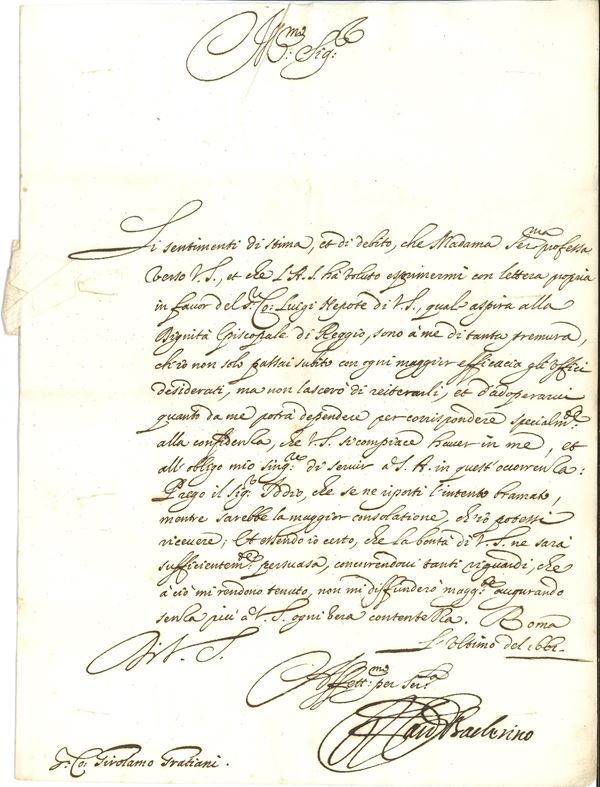 Ill.mo Sig.r
Li sentimenti di stima, et di debito, che Madama Ser.ma professa
verso V.S., et che l'A.S. hà voluto esprimermi con lettera propria
in favor del S.r Co: Luigi Nepote di V.S., qual aspira alla
Dignità Episcopale di Reggio, sono à me di tanta premura,
ch'io non solo passai subito con ogni maggior efficacia gli offici
desiderati, ma non lascerò di reiterarli, et d'adoperarvi
quanto da me potrà dependere per corrispondere specialm.te
alla confidenza, che V.S. si compiace haver in me, et
all'obligo mio sing.re di servir à S.A. in quest'occorrenza:
Prego il Sig.r Iddio, che se ne riporti l'intento bramato,
mentre sarebbe la maggior consolatione, ch'io potessi
ricevere; Et essendo io certo, che la bontà di V.S. ne sarà
sufficientem.te persuasa, concorrendovi tanti riguardi, che
à ciò mi rendono tenuto, non mi diffunderò magg.te augurando
senza più à V.S. ogni vera contentezza. Roma
L'Ultimo del 1661.
Di V.S.
Affett.mo per ser.la
Card Barberino
S.r Co: Girolamo Gratiani.